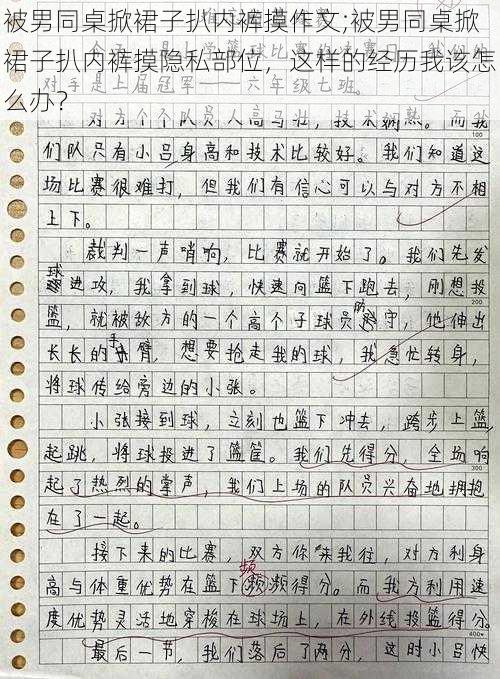 被男同桌掀裙子扒内裤摸作文;被男同桌掀
裙子扒内裤摸隐私部位，这样的经历我该怎
么办？
对手是上届冠军——六年级七班。
对方个个队员人高马壮，技术娴熟。而我
们队只有小吕身高和技术比较好。我们知道这
场比赛很难打，但我们有信心可以与对方不相
上下。
裁判一声哨响，比赛就开始了。我们先发
球进攻，我拿到球，快速向篮下跑去，刚想投
篮，就被敌方的一个高个子球员防守，他伸出
长长的手臂，想要抢走我的球，我急忙转身，
将球传给旁边的小张。
小张接到球，立刻也篮下冲去，跨步上篮，
起跳，将球投进了篮筐。我们先得分，全场响
起了热烈的掌声，我们上场的队员兴奋地拥抱
在了一起。
接下来的比赛，双方你来我往，对方利用身
高与体重优势在篮下频频得分。而我方利用速
度优势灵活地穿梭在球场上，在外线投篮得分。
最后一节，我们落后了两分，这时小吕快